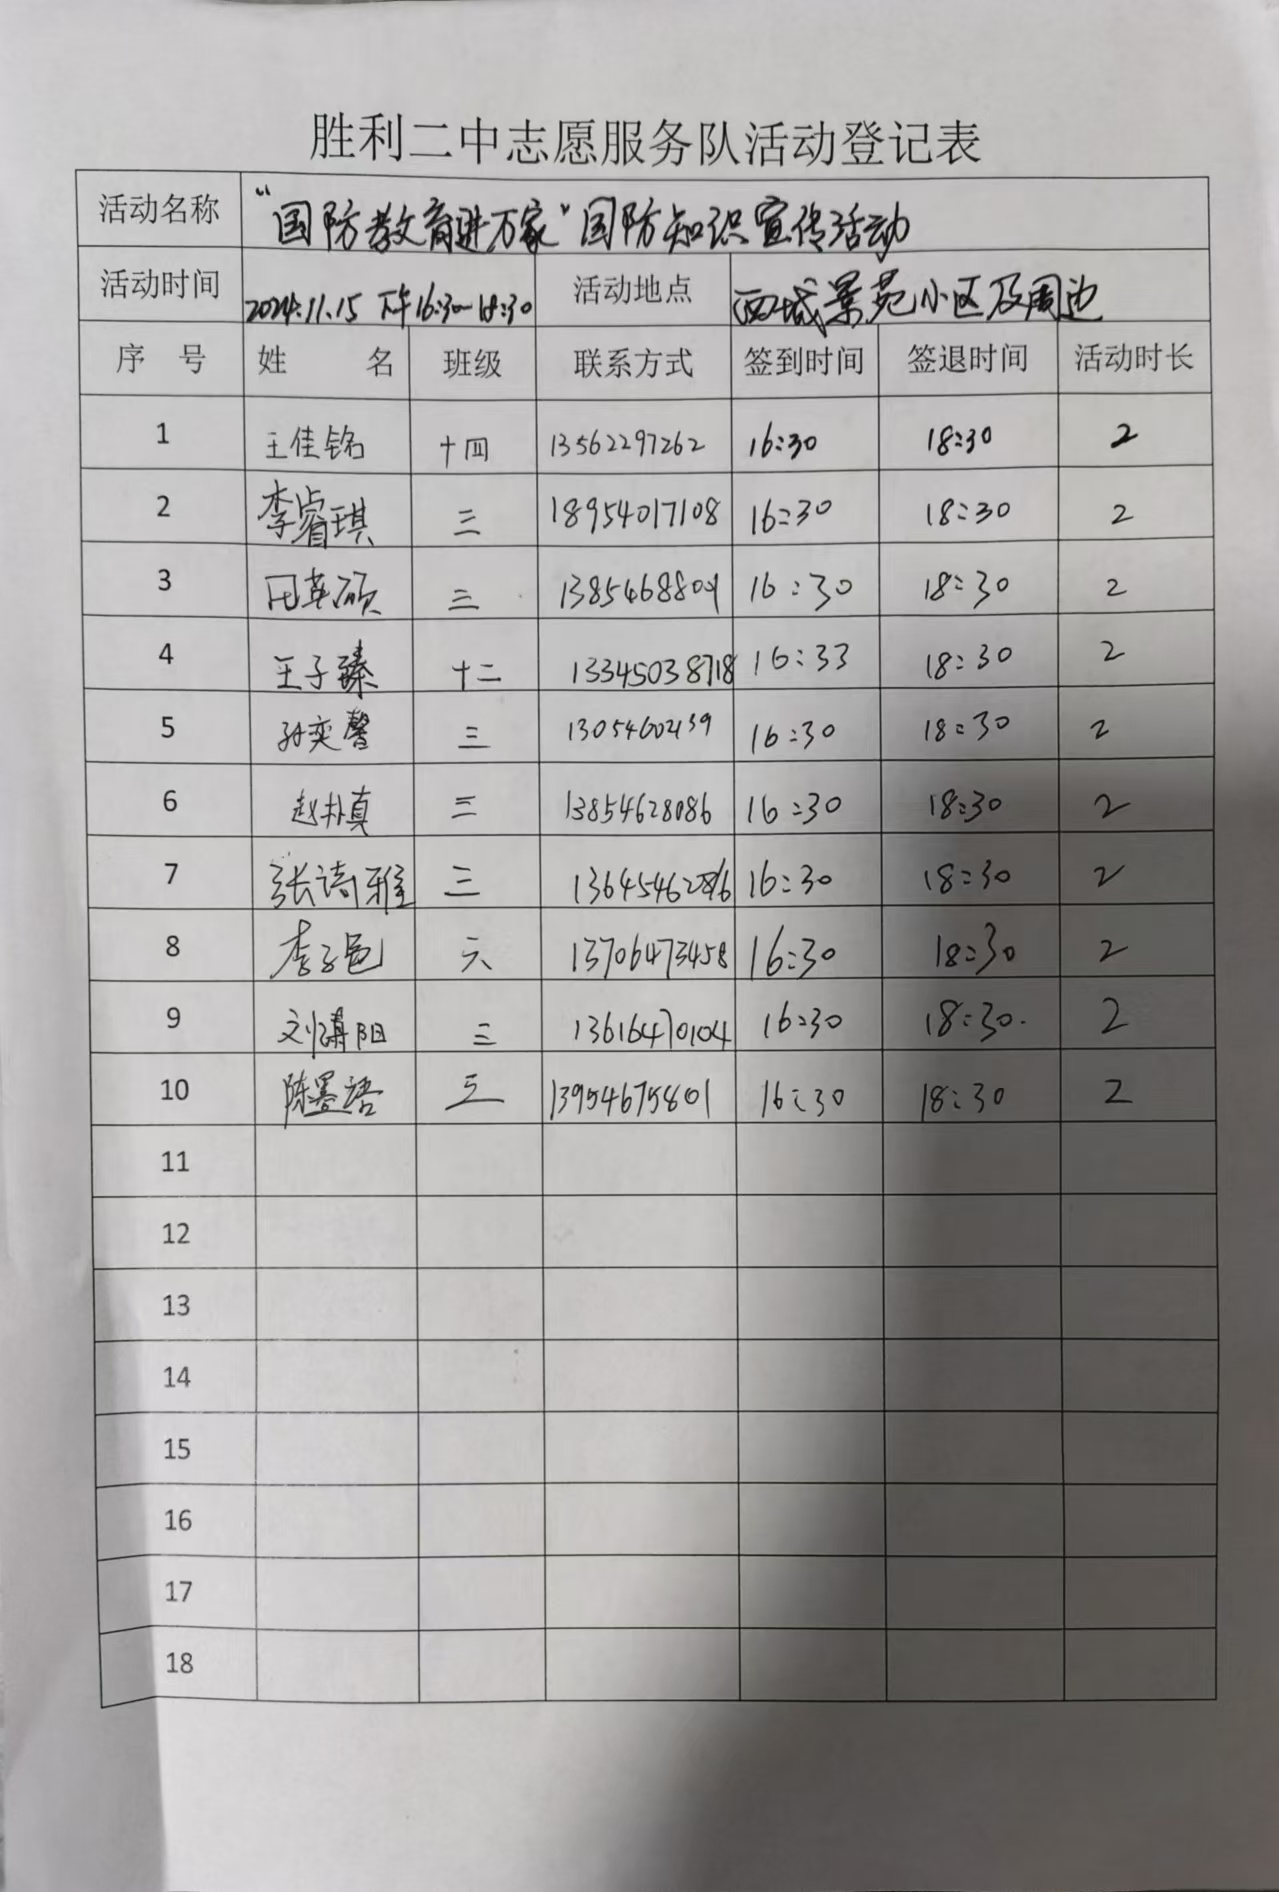 胜利二中志愿服务队活动登记表
活动名称 "国防教育进万家"国防知识宣传活动
活动时间 2024.11.15 下午16:30-18:30 活动地点 西城景苑小区及周边
序号 姓名 班级 联系方式 签到时间 签退时间 活动时长
1 王佳铭 十四 13562297262 16:30 18:30 2
2 李睿琪 三 18954017108 16:30 18:30 2
3 田英硕 三 16:30 18:30 2
4 王子臻 十二 13345038718 16:33 18:30 2
5 孙奕馨 三 16:30 18:30 2
6 赵朴真 三 13854628086 16:30 18:30 2
7 张诗雅 三 16:30 18:30 2
8 李子 六 13706473458 16:30 18:30 2
9 刘 阳 三 13616470104 16:30 18:30. 2
10 陈墨语 三 13954675801 16:30 18:30 2
11
12
13
14
15
16
17
18